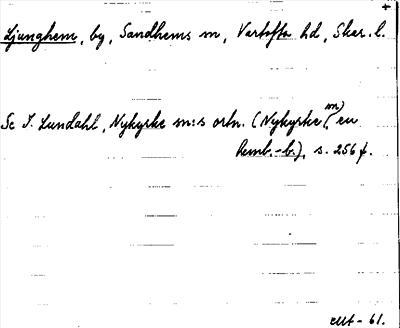 +
Ljunghem, by, Sandhems sn, Vartofta hd, Skar. l.
Se I. Lundahl, Nykyrke sn:s ortn. (Nykyrke sn, en
Remb.-b.), s. 256 f.
-61.